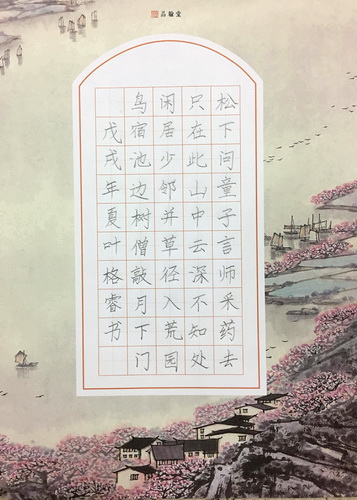 品翰堂
松下问童子言师采药去
只在此山中云深不知处
闲居少邻并草径入荒园
鸟宿池边树僧敲月下门
戊戌年夏叶格睿书